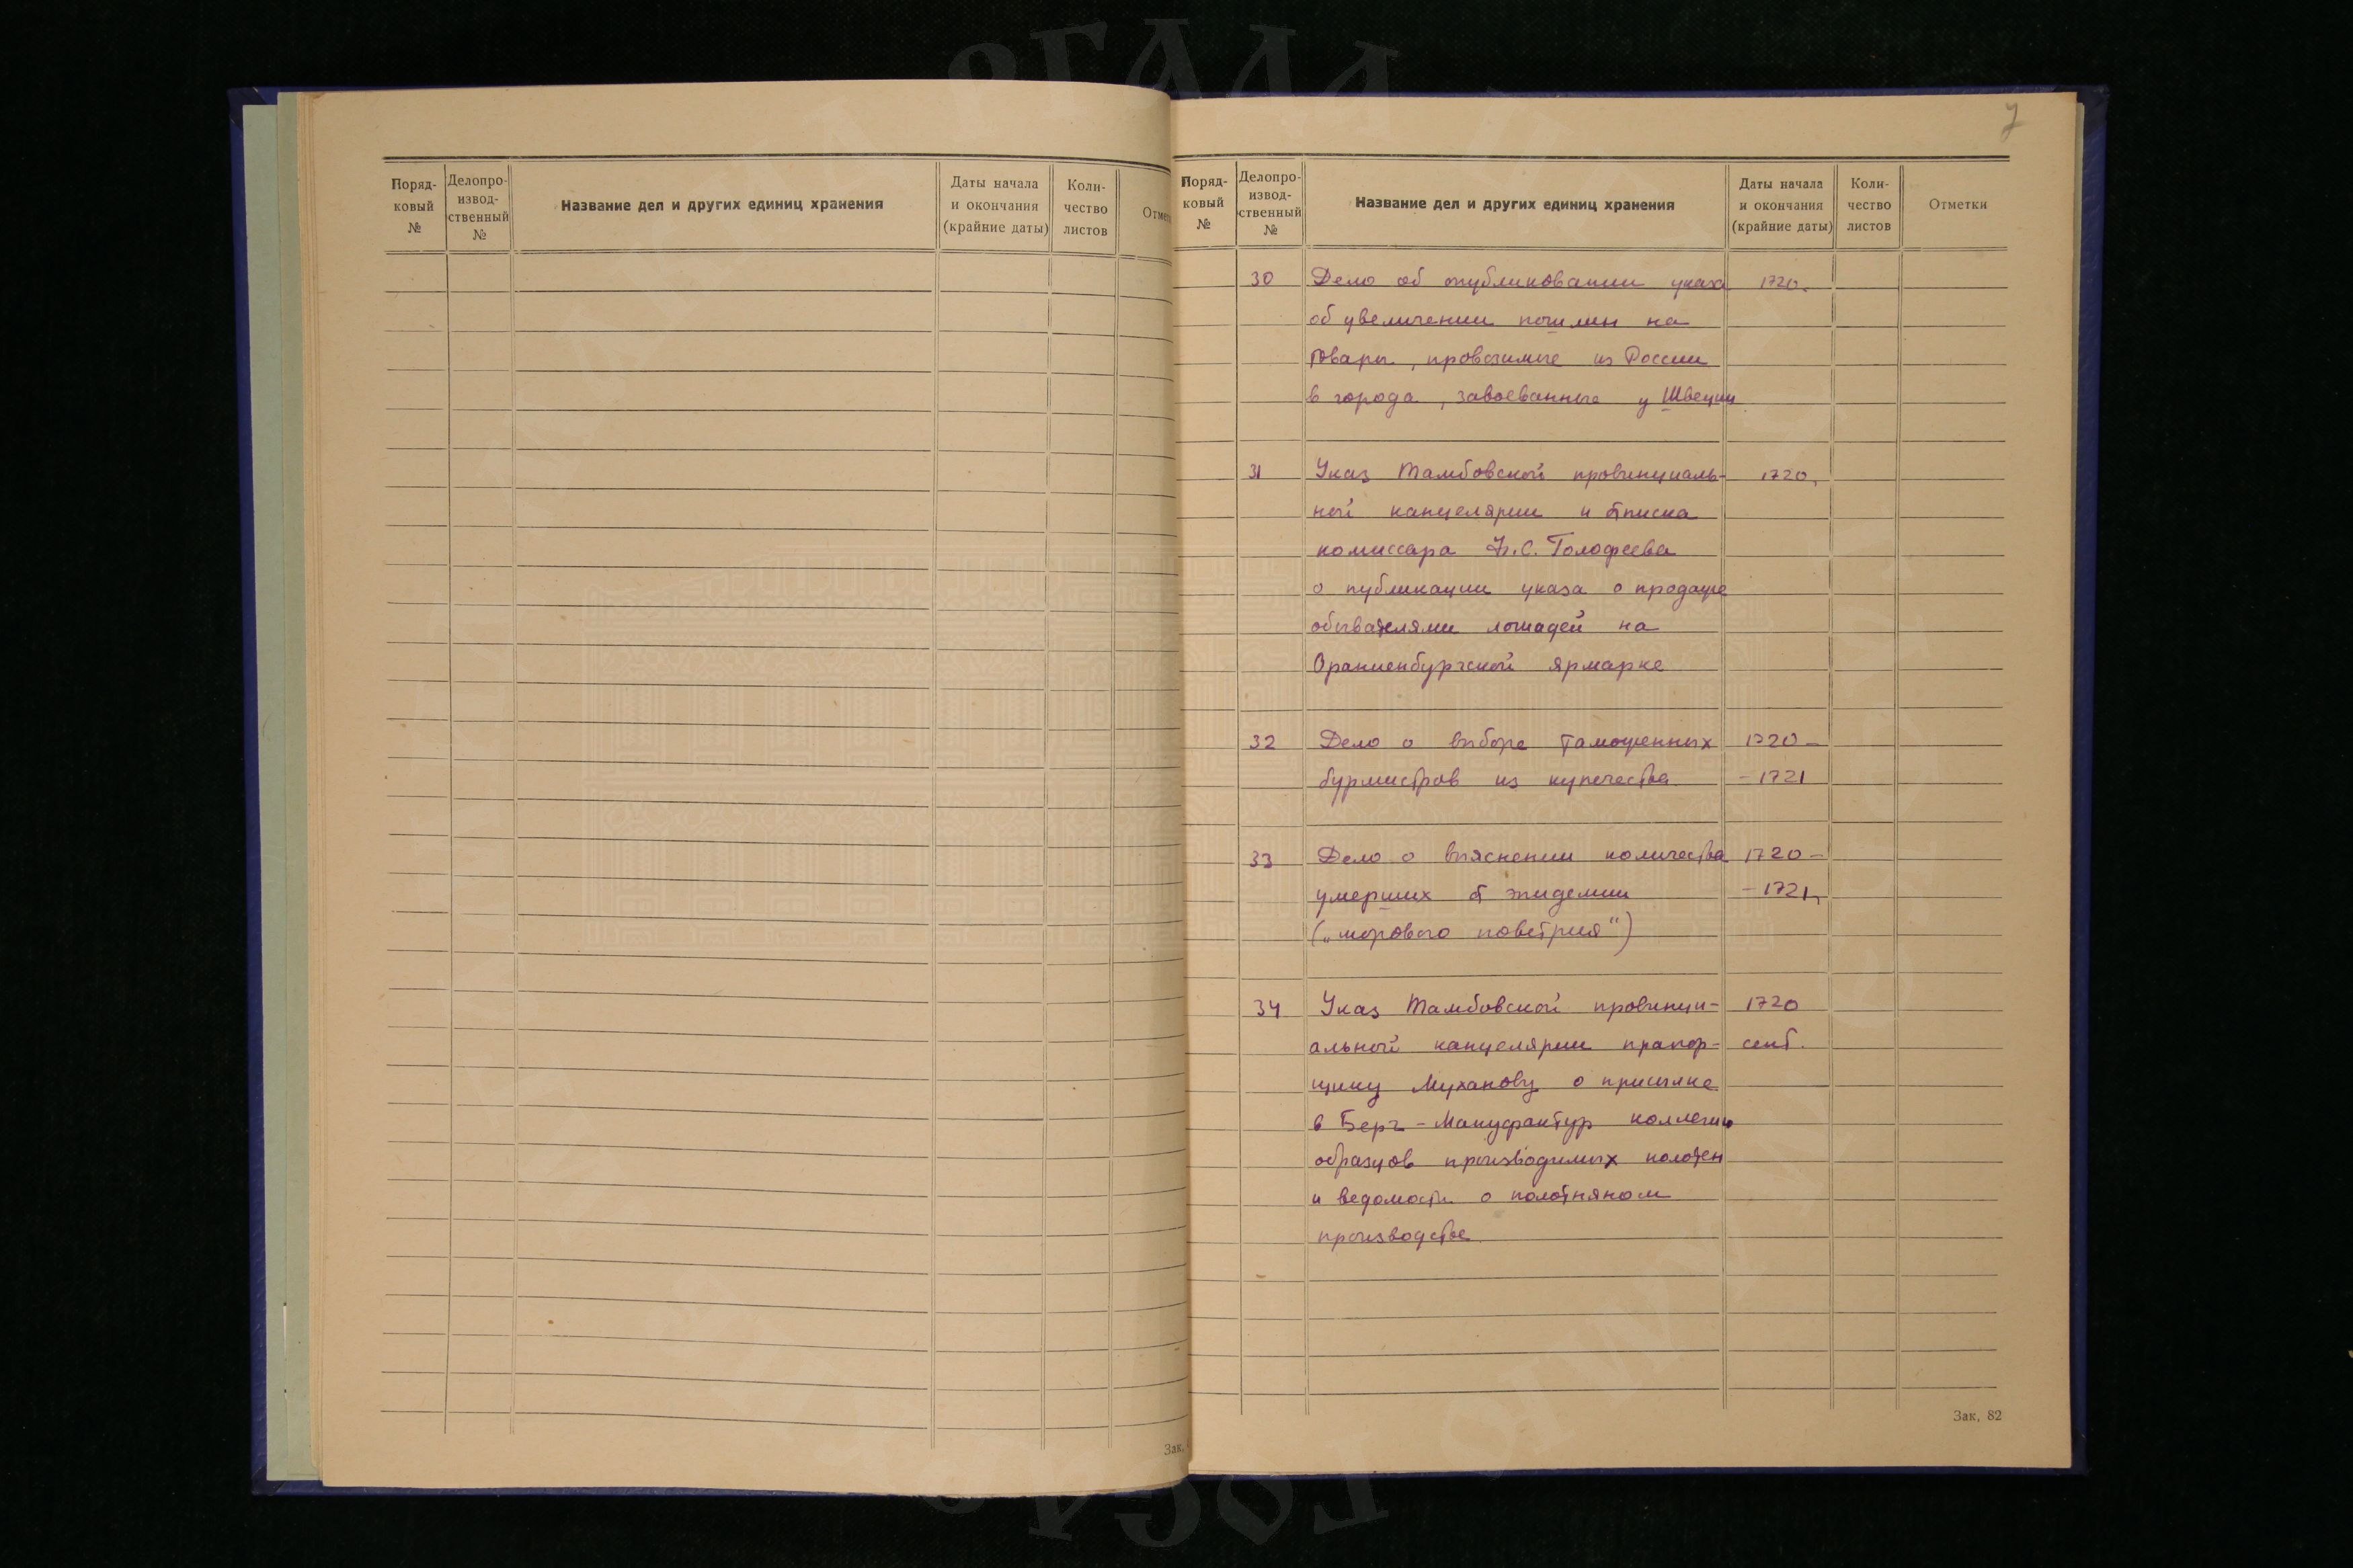 Поряд-
ковый
№
Делопро-
извод-
ственный
№
Название дел и других единиц хранения
Даты начала
и окончания
(крайние даты)
Коли-
чество
листов
Отмет
Зак.
7
Поряд-
ковый
№
Делопро-
извод-
ственный
№
Название дел и других единиц хранения
Даты начала
и окончания
(крайние даты)
Коли-
чество
листов
Отметки
30 Дело об опубликовании указа 1720.
об увеличении пошлин на
товары, провозимые из России
в города, завоеванные у Швеции
31 Указ Тамбовской провинциаль- 1720.
ной канцелярии и отписка
комиссара Голофеева
о публикации указа о продаже
обывателями лошадей на
Ораниенбургской ярмарке
32 Дело о выборе таможенных 1720 –
бурмистров из купечества – 1721
33 Дело о выяснении количества 1720 –
умерших от эпидемии – 1721.
(„морового поветрия“)
34 Указ Тамбовской провинци- 1720
альной канцелярии прапор- сент.
щику Муханову о присылке
в Берг – Мануфактур коллегию
образцов производимых полотен
и ведомости о полотняном
производстве
Зак. 82